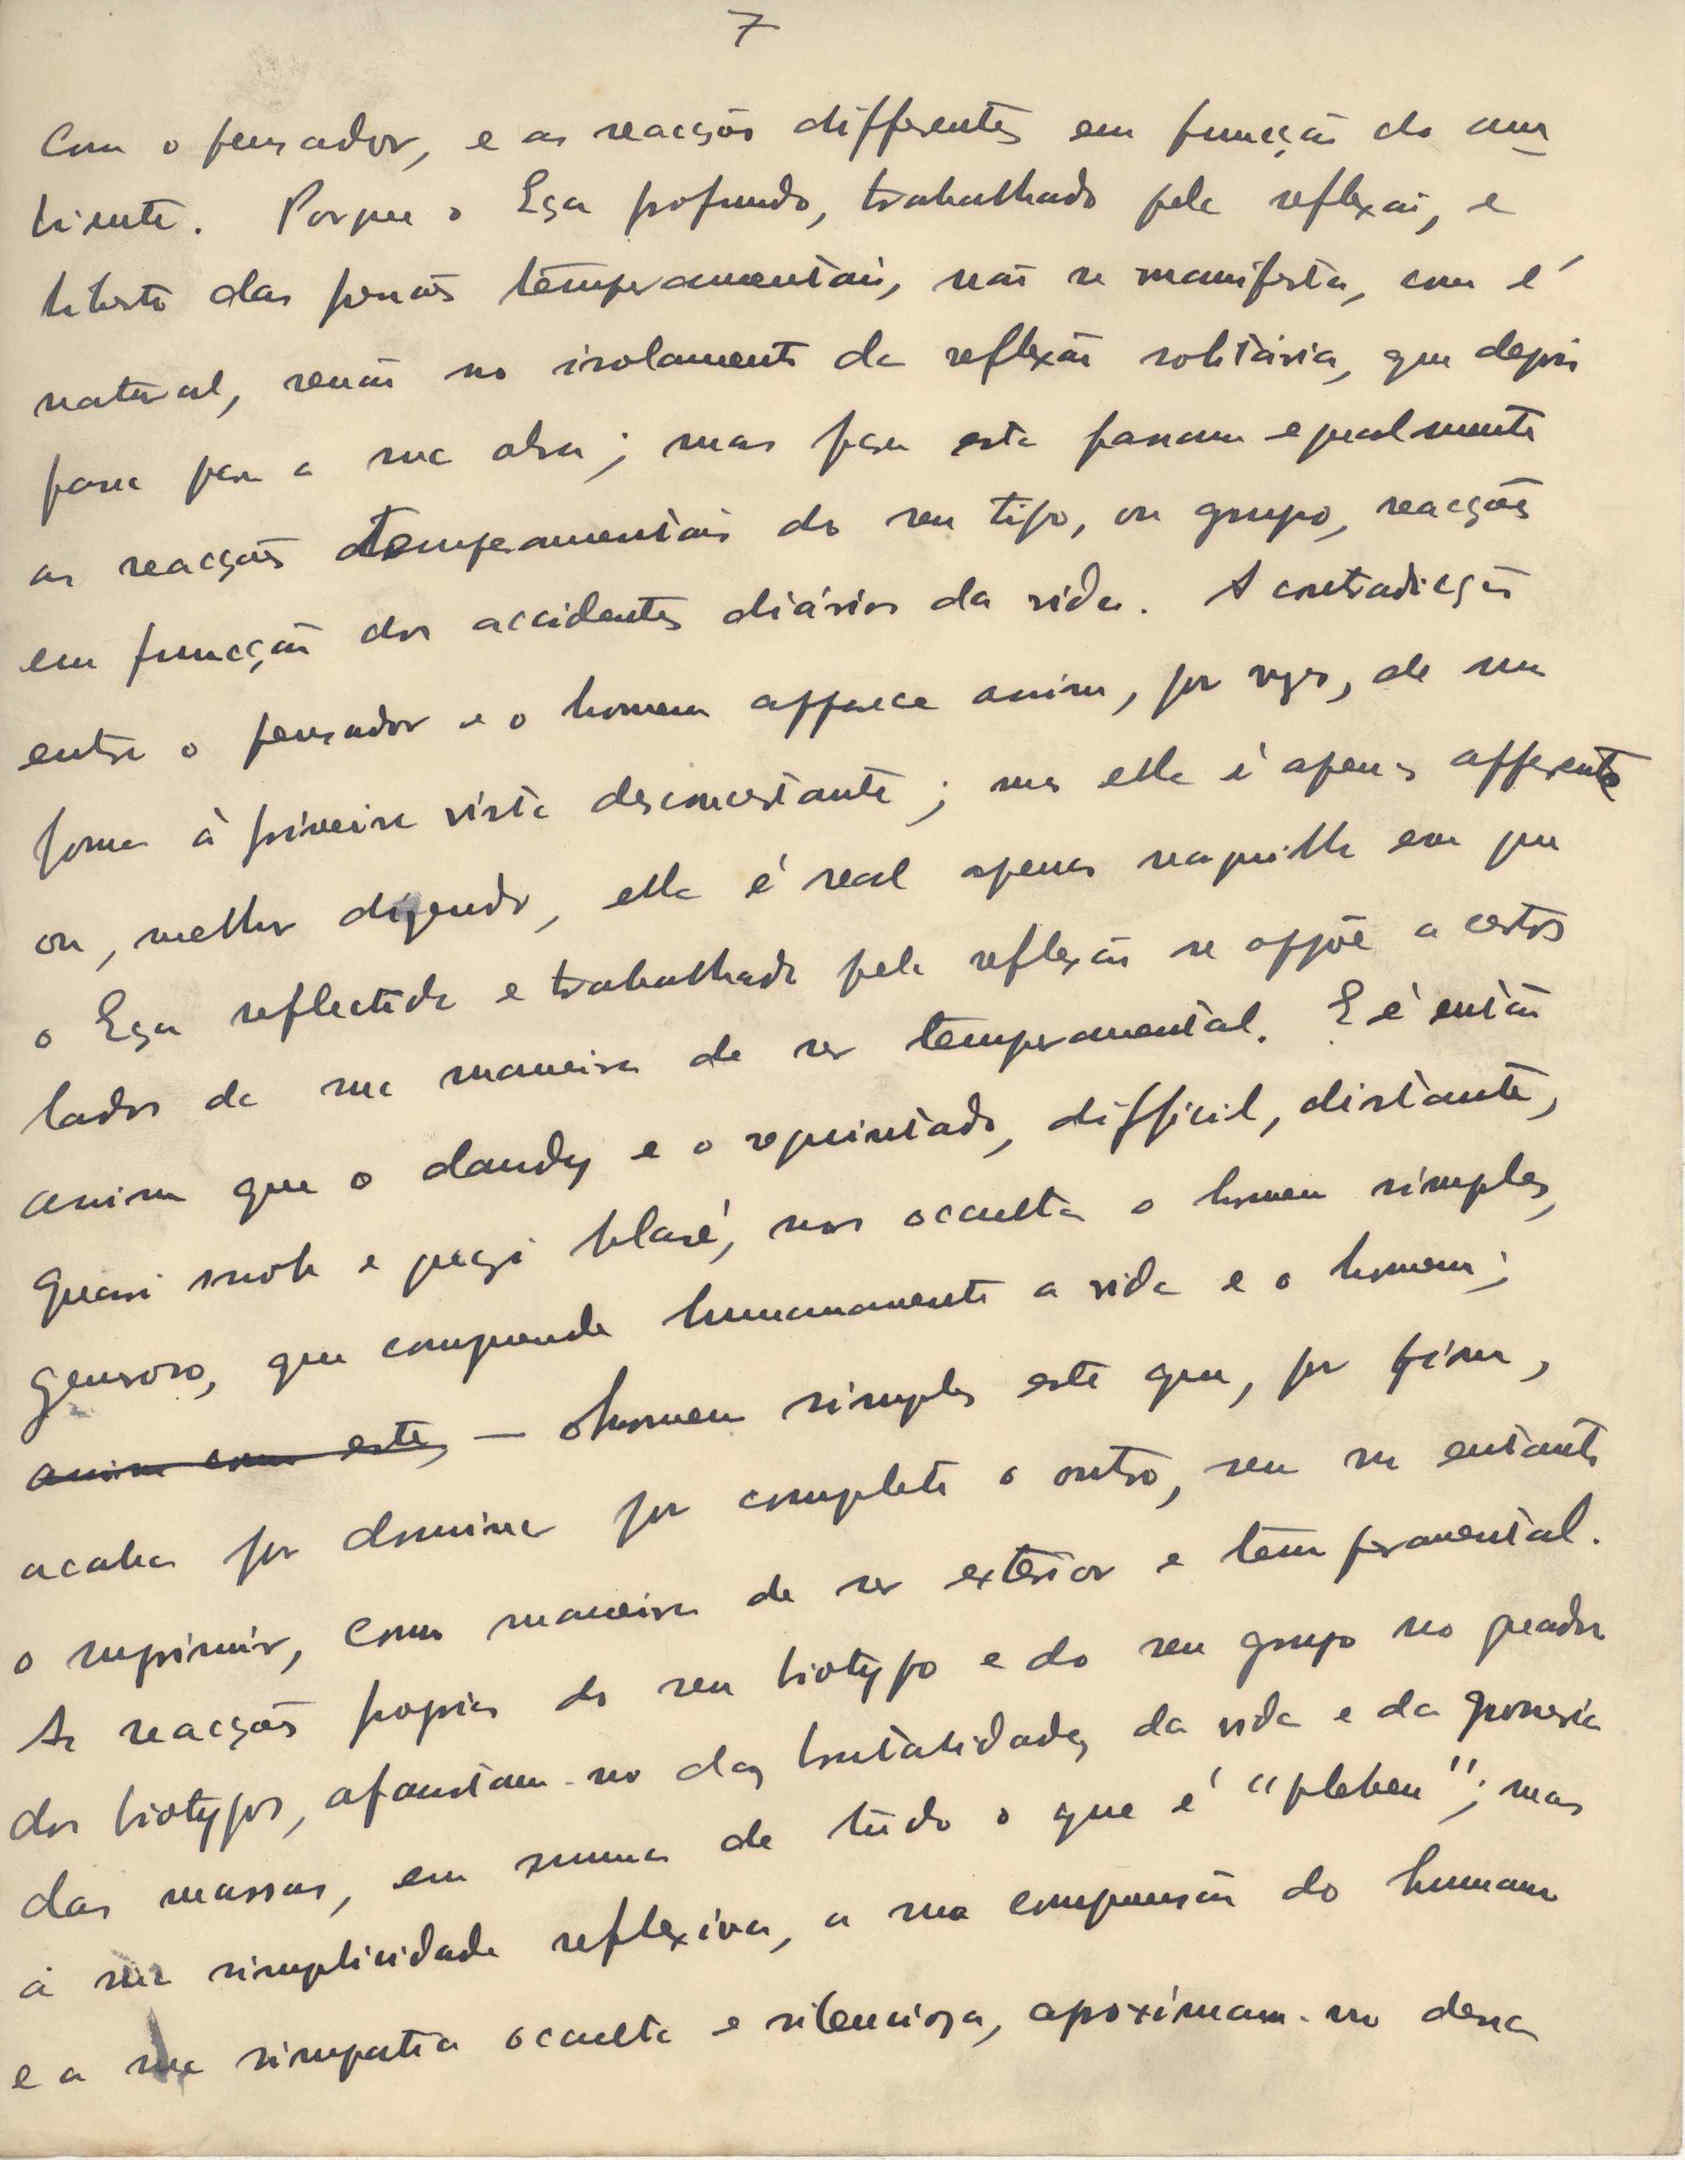 7
com o pensador, e as reacções differentes em funcção do am
biente. Porque o Eça profundo, trabalhado pela reflexão, e
liberto das pressões temperamentais, não se manifesta, como é
natural, senão no isolamento da reflexão solitária, que depois
passa para a sua obra; mas para esta passam egualmente
as reacções temperamentais do seu tipo, ou grupo, reacções
em funcção dos accidentes diários da vida. A contradicção
entre o pensador e o homem apparece assim, por vezes, de uma
forma à primeira vista desconcertante; mas ella é apenas apparente
ou, melhor dizendo, ella é real apenas naquillo em que
o Eça reflectido e trabalhado pela reflexão se oppõe a certos
lados da sua maneira de ser temperamental. E é então
assim que o dandy e o requintado, difficil, distante,
quasi snob e quasi blasé, nos occulta o homem simples,
generoso, que comprende humanamente a vida e o homem;
assim como este, — o homem simples este que, por fim,
acaba por dominar por completo o outro, sem no entanto
o suprimir, como maneira de ser exterior e temperamental.
As reacções proprias do seu biotypo e do seu grupo no quadro
dos biotypos, afastam-no das brutalidades da vida e da grosseria
das massas, em summa de tudo o que é "plebeu"; mas
a sua simplicidade reflexiva, a sua compreensão do humano
e a sua simpatia occulta e silenciosa, aproximam-no dessa